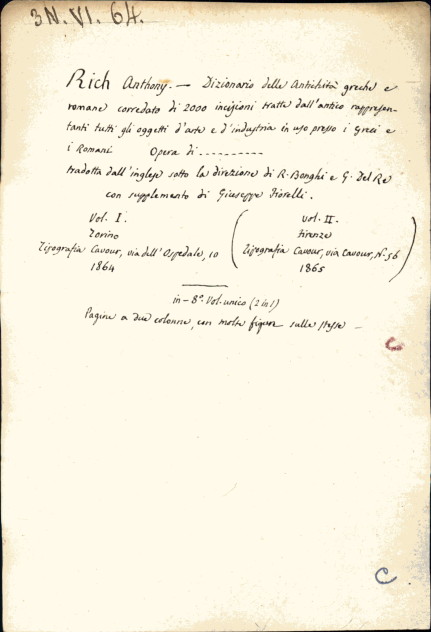 3N.VI.64.
Rich Anthony. — Dizionario delle Antichità greche e
romane corredato di 2000 incisioni tratte dall'antico rappresen-
tanti tutti gli oggetti d'arte e d'industria in uso presso i Greci e
i Romani Opera di ----------
tradotta dall'inglese sotto la direzione di R. Bonghi e G. Del Re
con supplemento di Giuseppe Fiorelli.
Vol. I.
Torino
Tipografia Cavour, via dell'Ospedale, 10
1864
Vol. II.
Firenze
Tipografia Cavour, via Cavour, N. 56
1865
in-8°. Vol. unico (2 in 1)
Pagine a due colonne, con molte figure sulle stesse —
C
C.